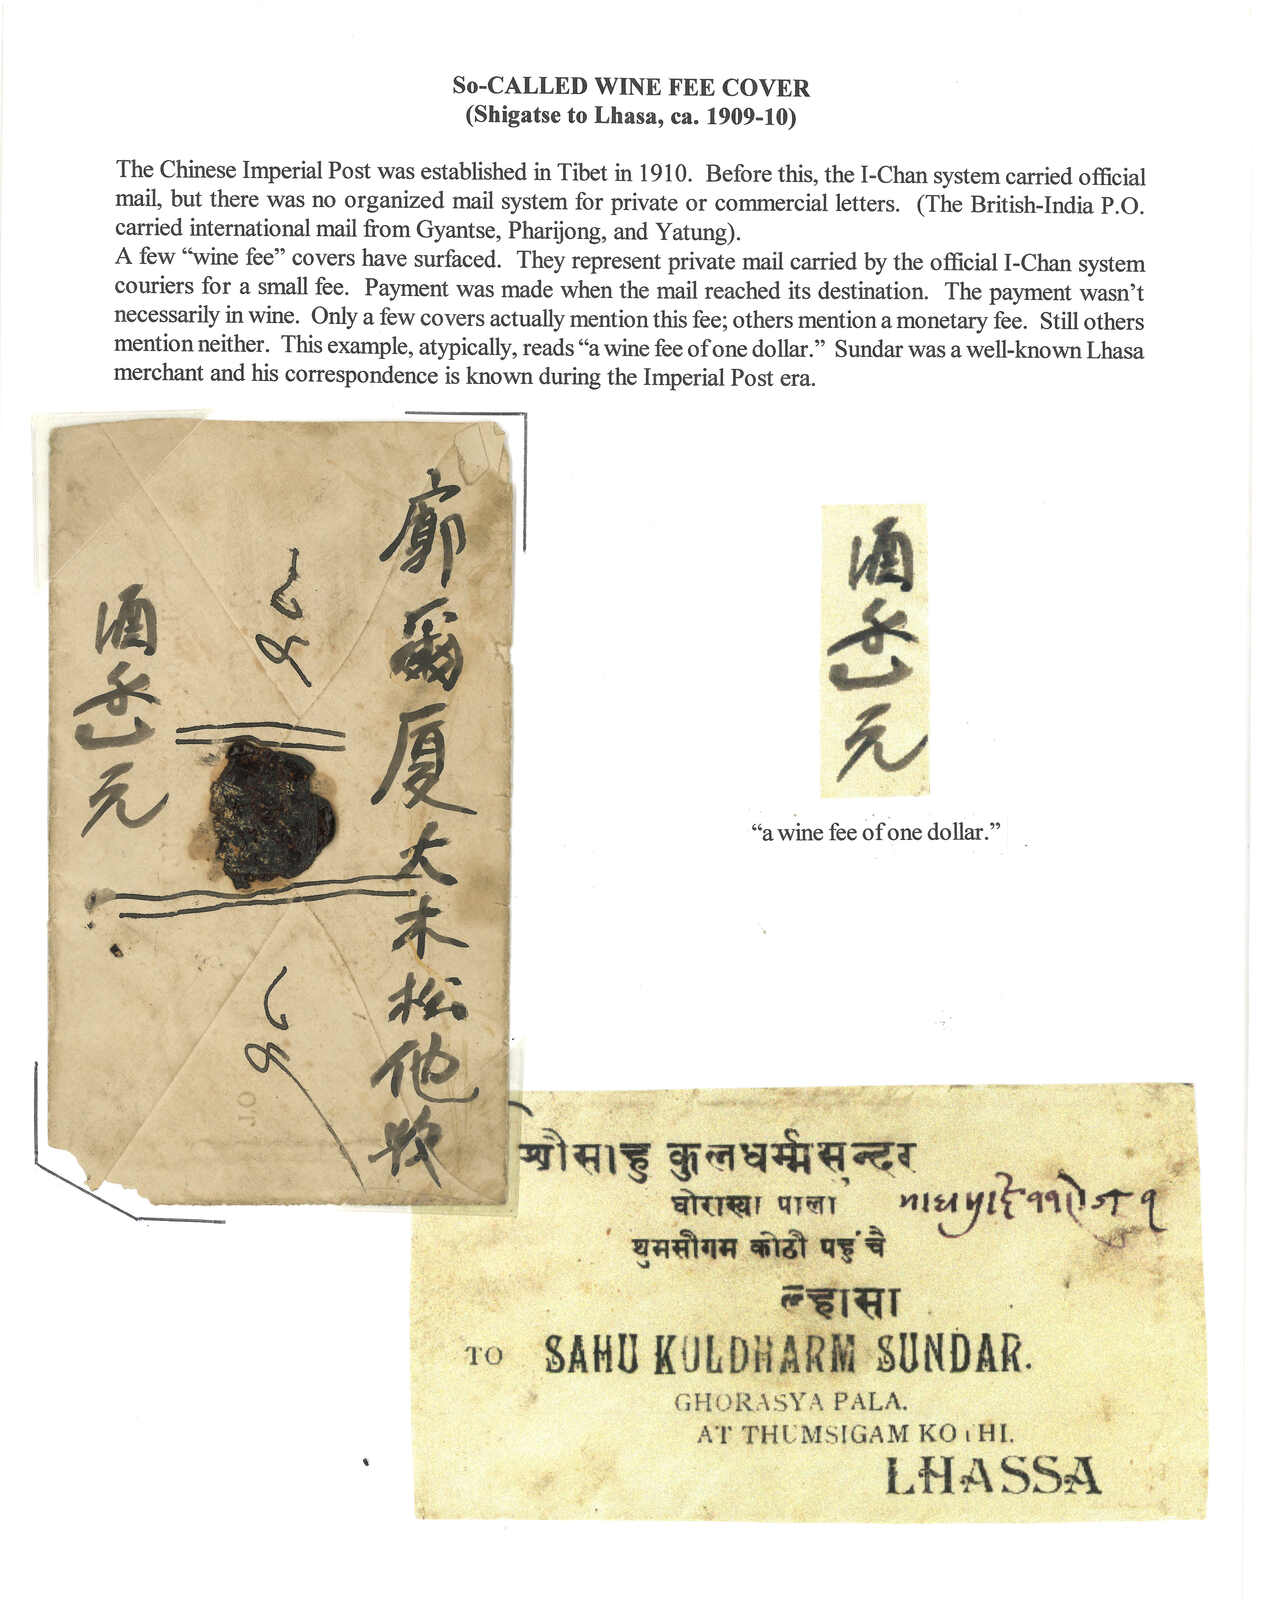 So-CALLED WINE FEE COVER
(Shigatse to Lhasa, ca. 1909-10)
The Chinese Imperial Post was established in Tibet in 1910.  Before this, the I-Chan system carried official
mail, but there was no organized mail system for private or commercial letters.  (The British-India P.O.
carried international mail from Gyantse, Pharijong, and Yatung).
A few “wine fee” covers have surfaced.  They represent private mail carried by the official I-Chan system
couriers for a small fee.  Payment was made when the mail reached its destination.  The payment wasn’t
necessarily in wine.  Only a few covers actually mention this fee; others mention a monetary fee.  Still others
mention neither.  This example, atypically, reads “a wine fee of one dollar.”  Sundar was a well-known Lhasa
merchant and his correspondence is known during the Imperial Post era.
廓爾厦大木松他收
酒元
酒元
“a wine fee of one dollar.”
श्रीसाहु कुलधर्म्मसुन्दर
घोरास्या पाला
थुमसीगम कोठी पहुंचै
ल्हासा
TO SAHU KULDHARM SUNDAR.
GHORASYA PALA.
AT THUMSIGAM KOTHI.
LHASSA